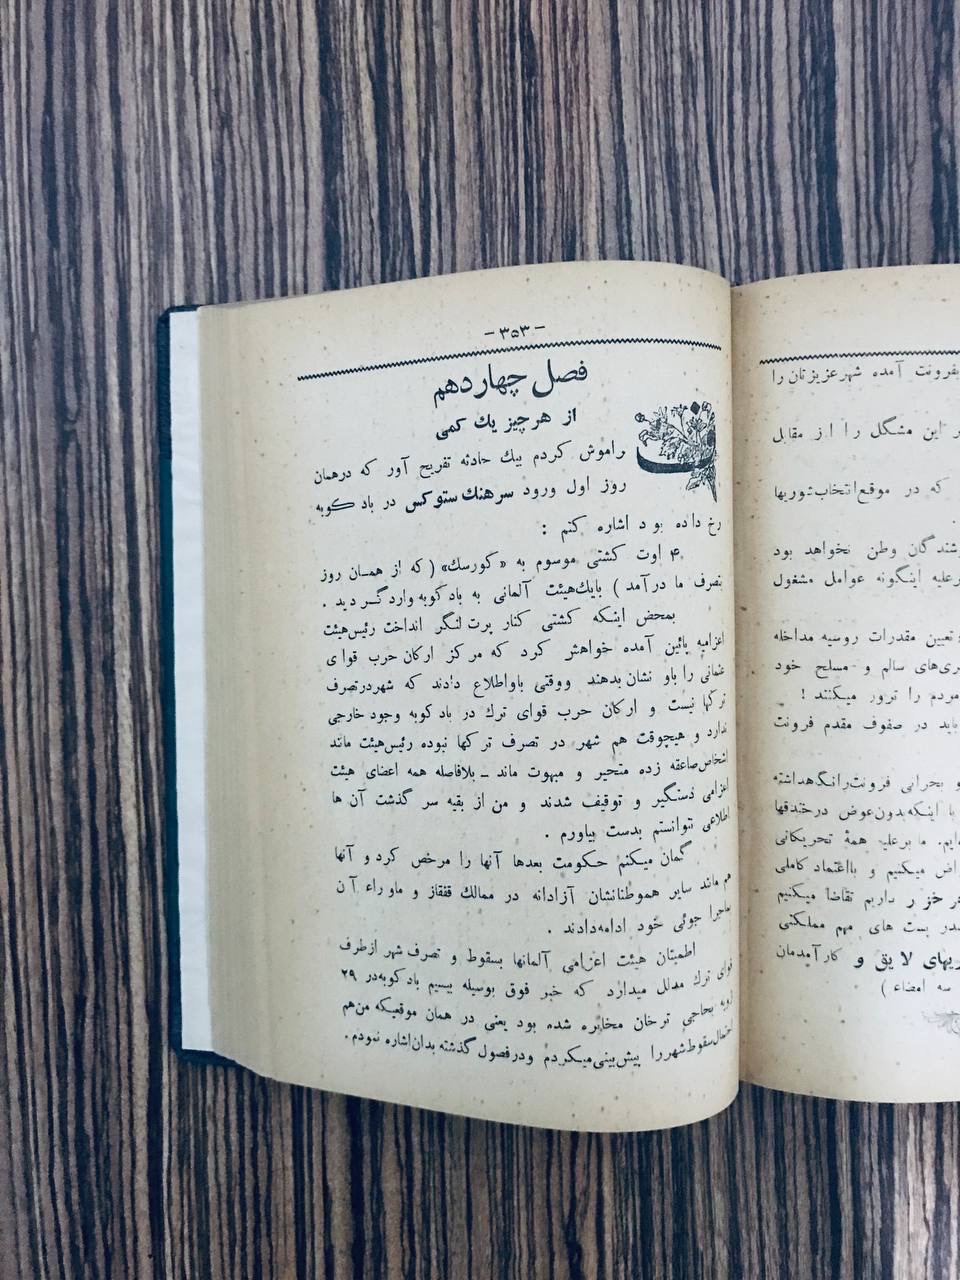 بفرونت آمده شهر عزیزتان را
این مشگل را از مقابل
که در موقع انتخاب شوریها
وطن نخواهد بود
اینگونه عوامل مشغول
تعیین مقدرات روسیه مداخله
سالم و مسلح خود
مردم را ترور میکنند !
باید در صفوف مقدم فرونت
و بحرانی فرونت را نگهداشته
با اینکه بدون عوض در خندقها
ما بر علیه همهٔ تحریکاتی
میکنیم و بااعتماد کاملی
خزر داریم تقاضا میکنیم
بست های مهم مملکتی
لایق و کارآمدمان
سه امضاء )
- ۳۵۳ -
فصل چهاردهم
از هر چیز یك کمی
فراموش کردم بیك حادثه تفریح آور که در همان
روز اول ورود سرهنك ستوکس در بادکوبه
رخ داده بود اشاره کنم :
۴ اوت کشتی موسوم به «کورسك» ( که از همان روز
بتصرف ما درآمد ) بایك هیئت آلمانی به بادکوبه وارد گردید .
بمحض اینکه کشتی کنار پرت لنگر انداخت رئیس هیئت
اعزامیه پائین آمده خواهش کرد که مرکز ارکان حرب قوای
عثمانی را باو نشان بدهند ووقتی باواطلاع دادند که شهر در تصرف
ترکها نیست و ارکان حرب قوای ترك در بادکوبه وجود خارجی
ندارد و هیچوقت هم شهر در تصرف ترکها نبوده رئیس هیئت مانند
اشخاص صاعقه زده متحیر و مبهوت ماند ــ بلافاصله همه اعضای هیئت
اعزامی دستگیر و توقیف شدند و من از بقیه سر گذشت آن ها
اطلاعی نتوانستم بدست بیاورم .
گمان میکنم حکومت بعدها آنها را مرخص کرد و آنها
هم مانند سایر هموطنانشان آزادانه در ممالك قفقاز و ماوراء آن
بماجرا جوئی خود ادامه دادند .
اطمینان هیئت اعزامی آلمانها بسقوط و تصرف شهر از طرف
قوای ترك مدلل میدارد که خبر فوق بوسیله بیسیم بادکوبه در ۲۹
ژویه بحاجی ترخان مخابره شده بود یعنی در همان موقعیکه من هم
احتمال سقوط شهر را پیش بینی میکردم و در فصول گذشته بدان اشاره نمودم .